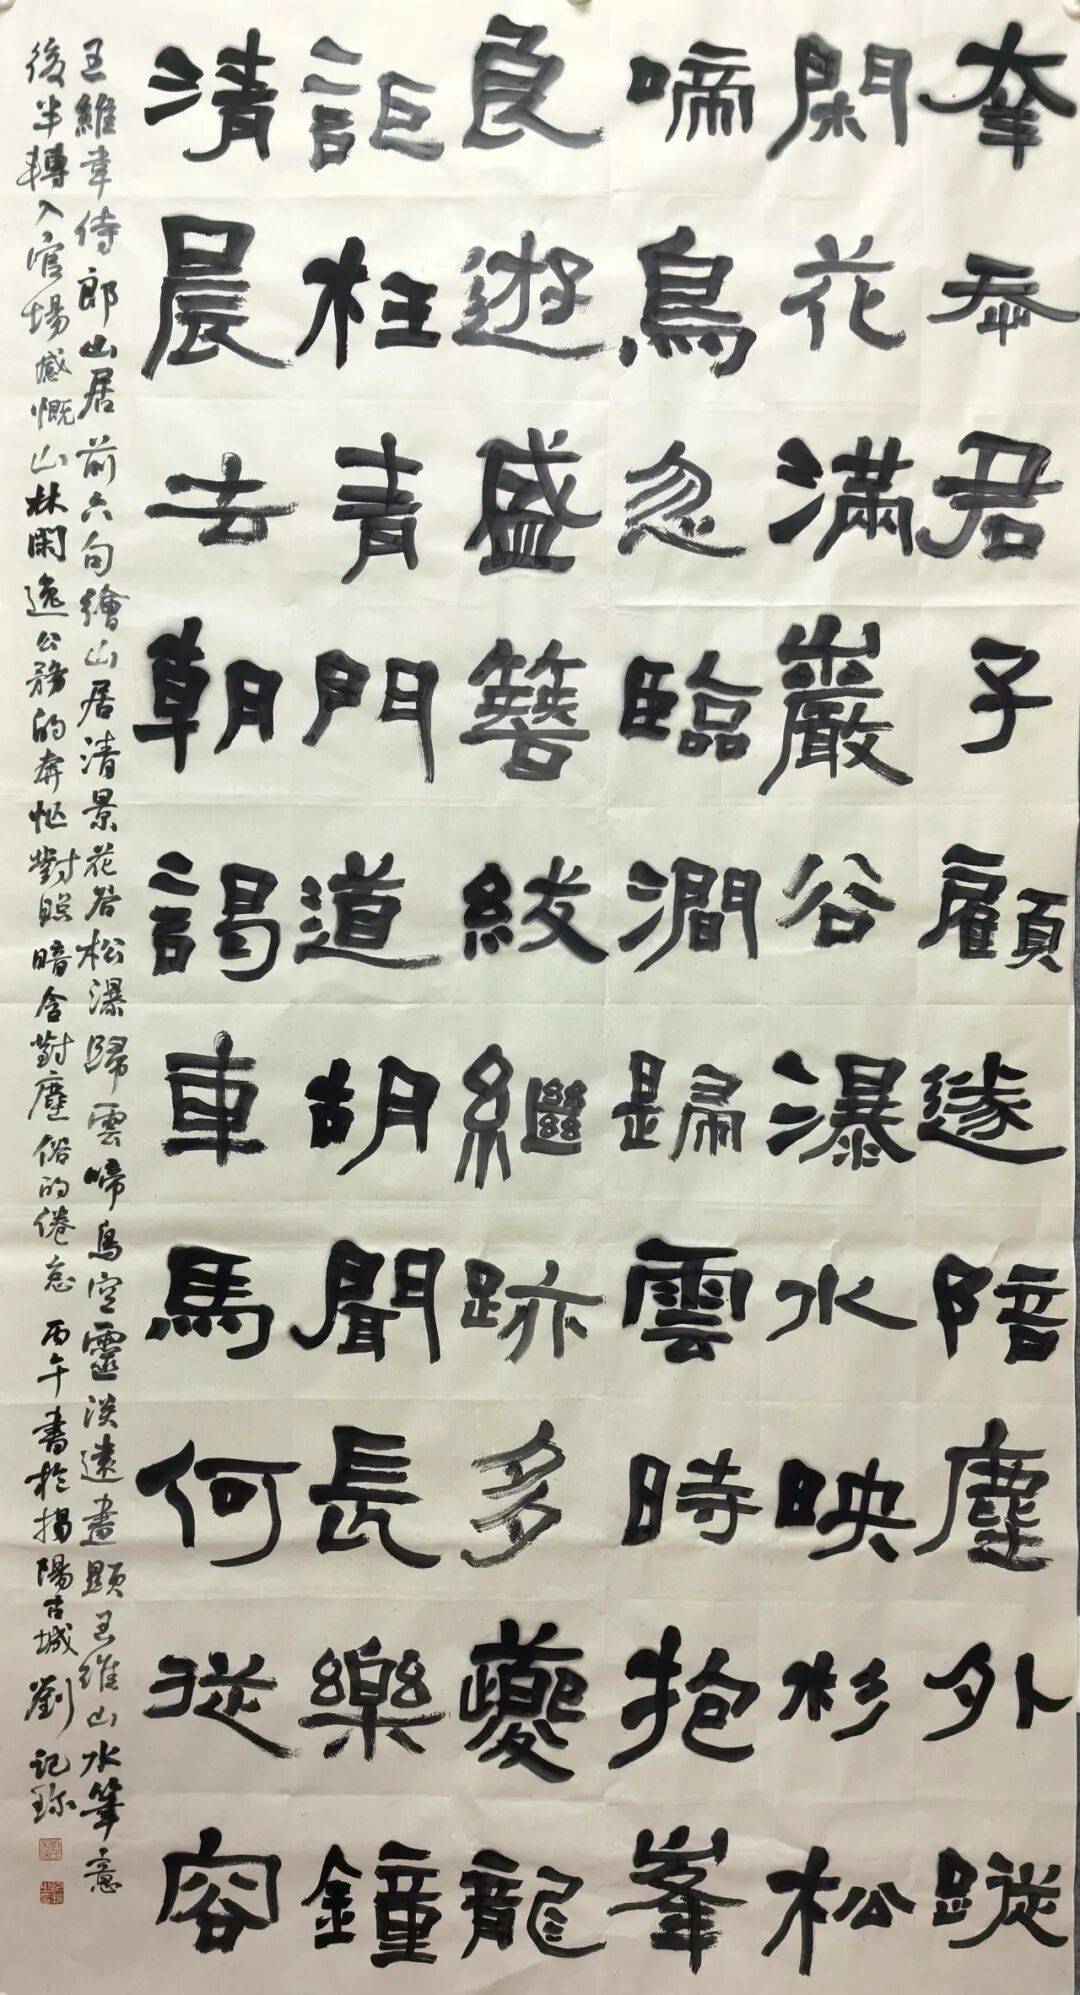 幸忝君子顧遂陪塵外蹤
閑花滿巖谷瀑水映杉松
啼鳥忽臨澗歸雲時抱峯
良遊盛簪紱繼跡多夔龍
詎枉青門道胡聞長樂鐘
清晨去朝謁車馬何從容
王維韋侍郎山居前六句繪山居清景花岩松瀑歸雲啼鳥空靈淡遠盡顯王維山水筆意
後半轉入官場感慨山林閑逸公務的奔忙對照暗含對塵俗的倦怠 丙午書於揭陽古城劉記珎